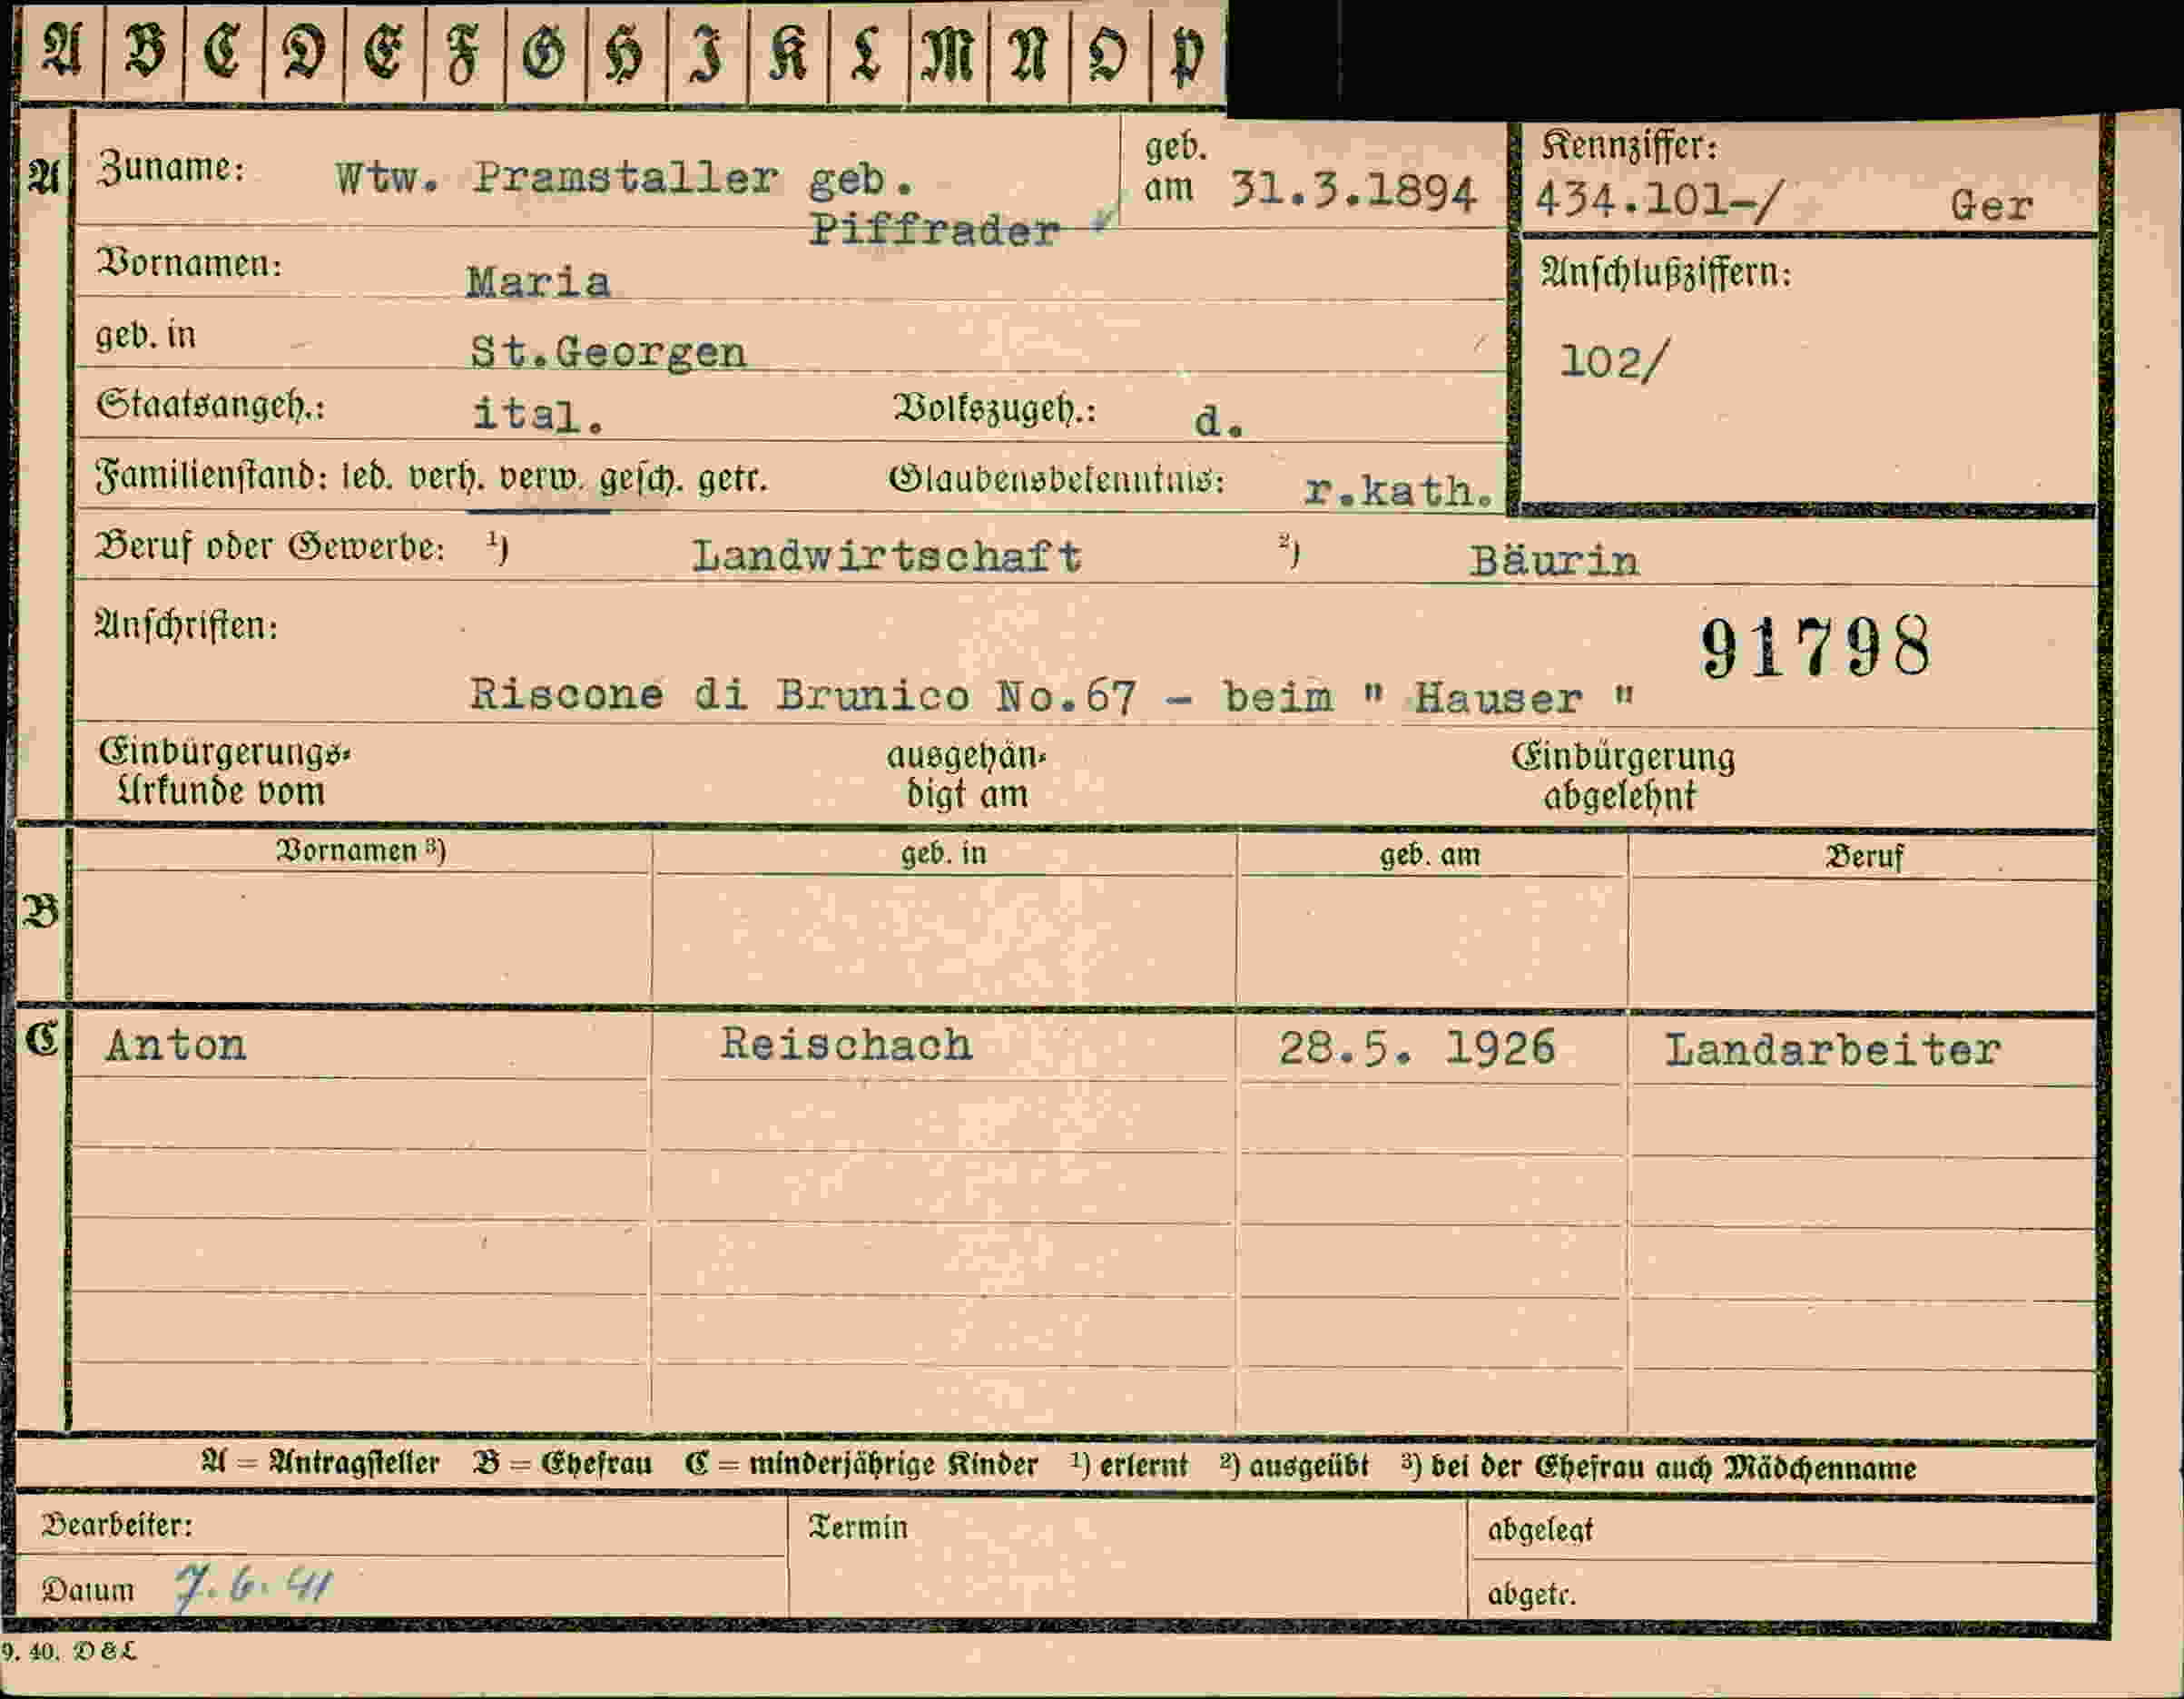 A B C D E F G H I K L M N O P
A Zuname: Wtw. Pramstaller geb. Piffrader geb. am 31.3.1894
Kennziffer: 434.101-/ Ger
Vornamen: Maria
Anschlußziffern: 102/
geb. in St.Georgen
Staatsangeh.: ital. Volkszugeh.: d.
Familienstand: led. verh. verw. gesch. getr. Glaubensbekenntnis: r.kath.
Beruf oder Gewerbe: ¹) Landwirtschaft ²) Bäurin
Anschriften: 91798
Riscone di Brunico No.67 - beim " Hauser "
Einbürgerungs-Urkunde vom ausgehändigt am Einbürgerung abgelehnt
Vornamen ³) geb. in geb. am Beruf
B
C Anton Reischach 28.5. 1926 Landarbeiter
A = Antragsteller B = Ehefrau C = minderjährige Kinder ¹) erlernt ²) ausgeübt ³) bei der Ehefrau auch Mädchenname
Bearbeiter: Termin abgelegt
Datum 7.6.41 abgetr.
9. 40. D&L